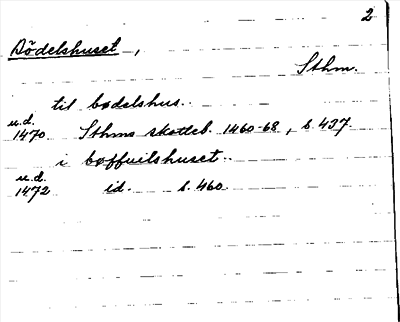 2
Bödelshuset,
Sthm.
til bødelshus..
u.d.
1470 Sthms skotteb. 1460-68, s. 437
i bøffuilshuset..
u.d.
1472 id. s. 460